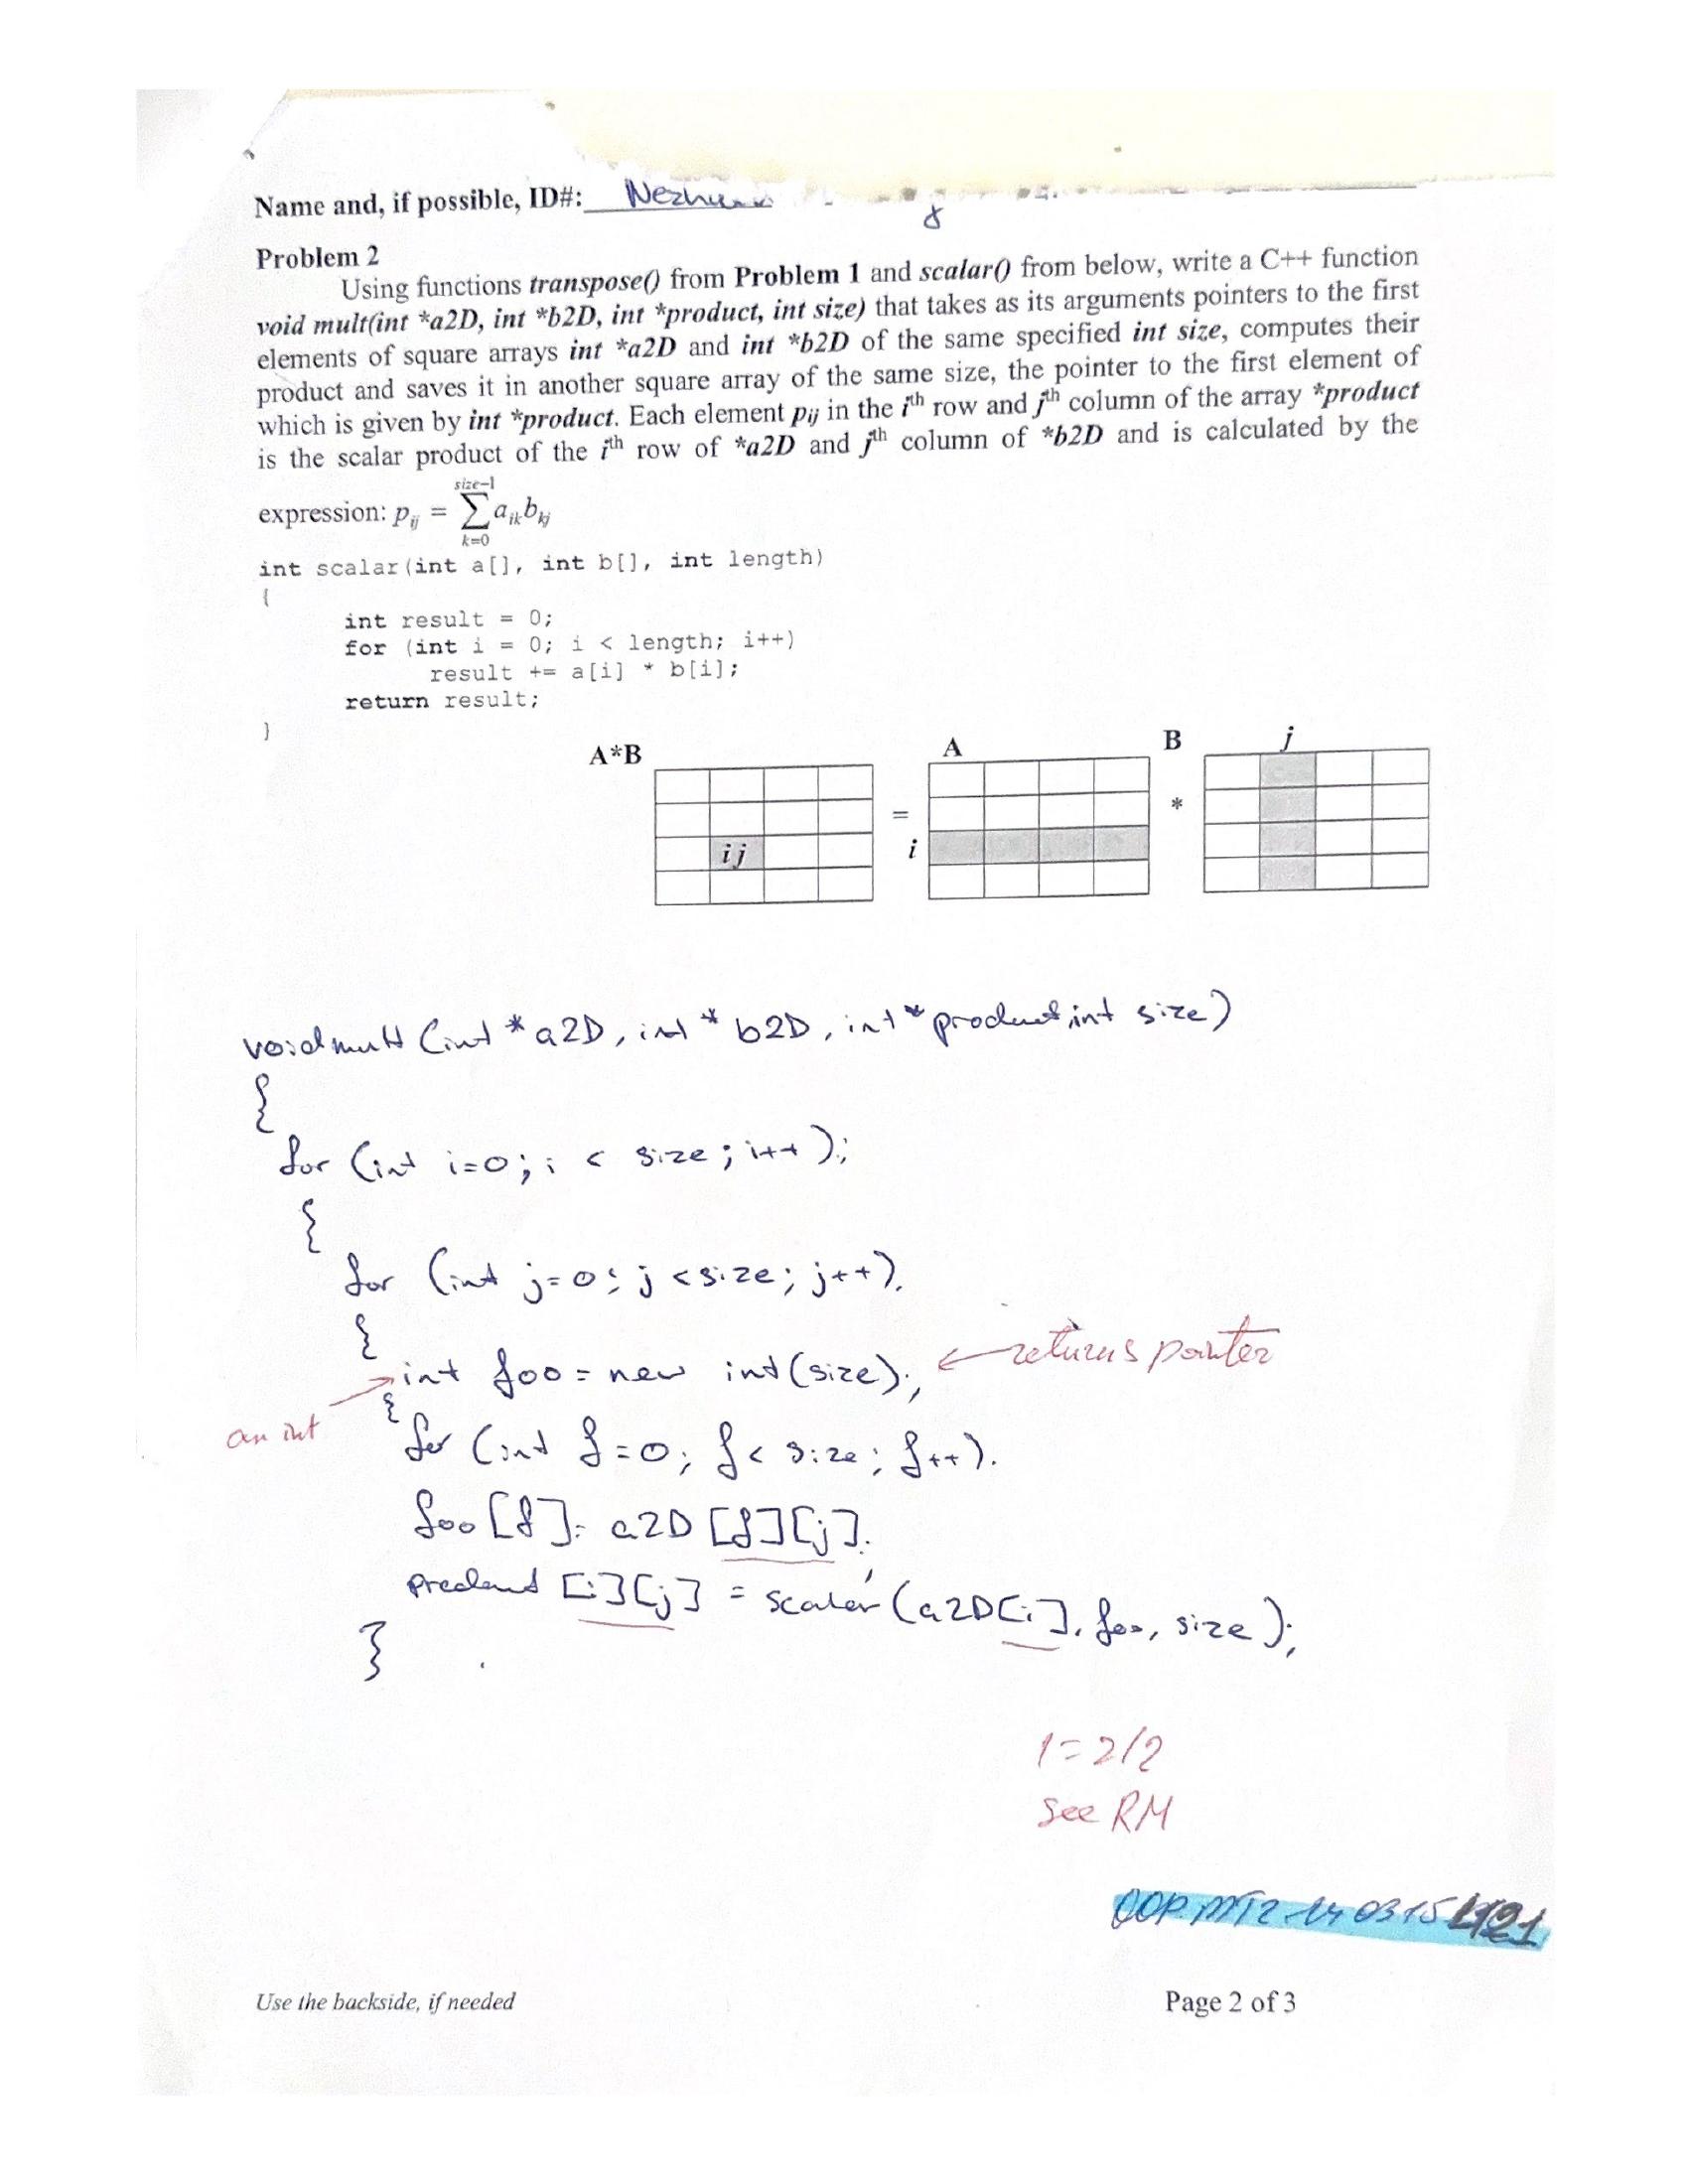 Name and, if possible, ID#:
Problem 2
Using functions transpose() from Problem 1 and scalar() from below, write a C++ function
void mult(int *a2D, int *b2D, int *product, int size) that takes as its arguments pointers to the first
elements of square arrays int *a2D and int *b2D of the same specified int size, computes their
product and saves it in another square array of the same size, the pointer to the first element of
which is given by int *product. Each element pij in the ith row and jth column of the array *product
is the scalar product of the ith row of *a2D and jth column of *b2D and is calculated by the
expression: pij = size-1 ∑ k=0 aik bkj
int scalar(int a[], int b[], int length)
{
int result = 0;
for (int i = 0; i < length; i++)
result += a[i] * b[i];
return result;
}
A*B A B j
= *
ij i
void mult (int * a2D, int * b2D, int * product, int size)
{
for (int i=0; i < size; i++);
{
for (int j=0; j <size; j++).
{
int foo = new int(size); ← returns pointer
an int
{
for (int f=0; f< size; f++).
foo [f]= a2D [f][j];
product [i][j] = scalar (a2D[i], foo, size);
}
1=2/2
see RM
OOP MT2 14 03 15
Use the backside, if needed Page 2 of 3